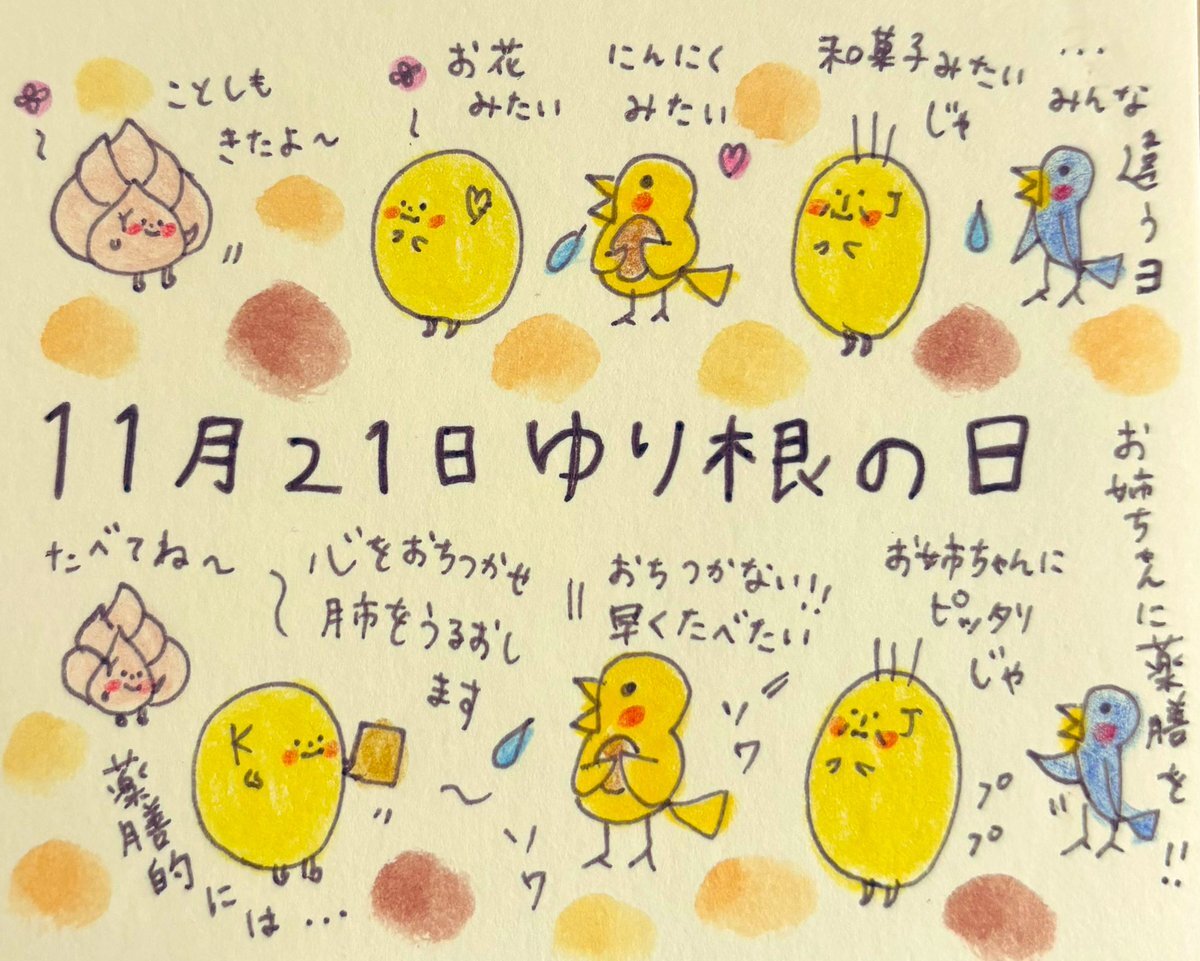 ことしも
きたよ〜
お花
みたい
にんにく
みたい
和菓子みたい
じゃ
...
みんな
違うヨ
11月21日ゆり根の日
たべてね〜
薬膳的
には...
K
心をおちつかせ
肺をうるおし
ます
おちつかない!!
早くたべたい
ソワ
ソワ
お姉ちゃんに
ピッタリ
じゃ
J
J
プププ
お姉ちゃんに薬膳を!!